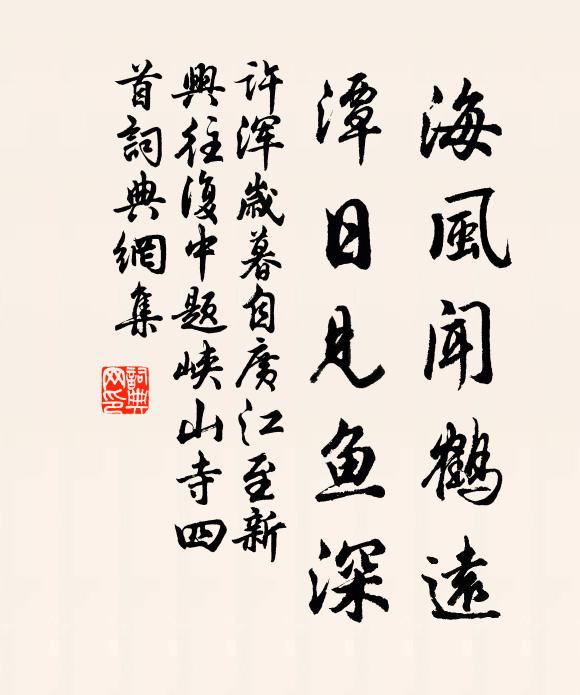 海風聞鶴遠
潭日見鱼深
许浑歲暮自廣江至新
興往復中題峡山寺四
首詞典網集
詞典網印